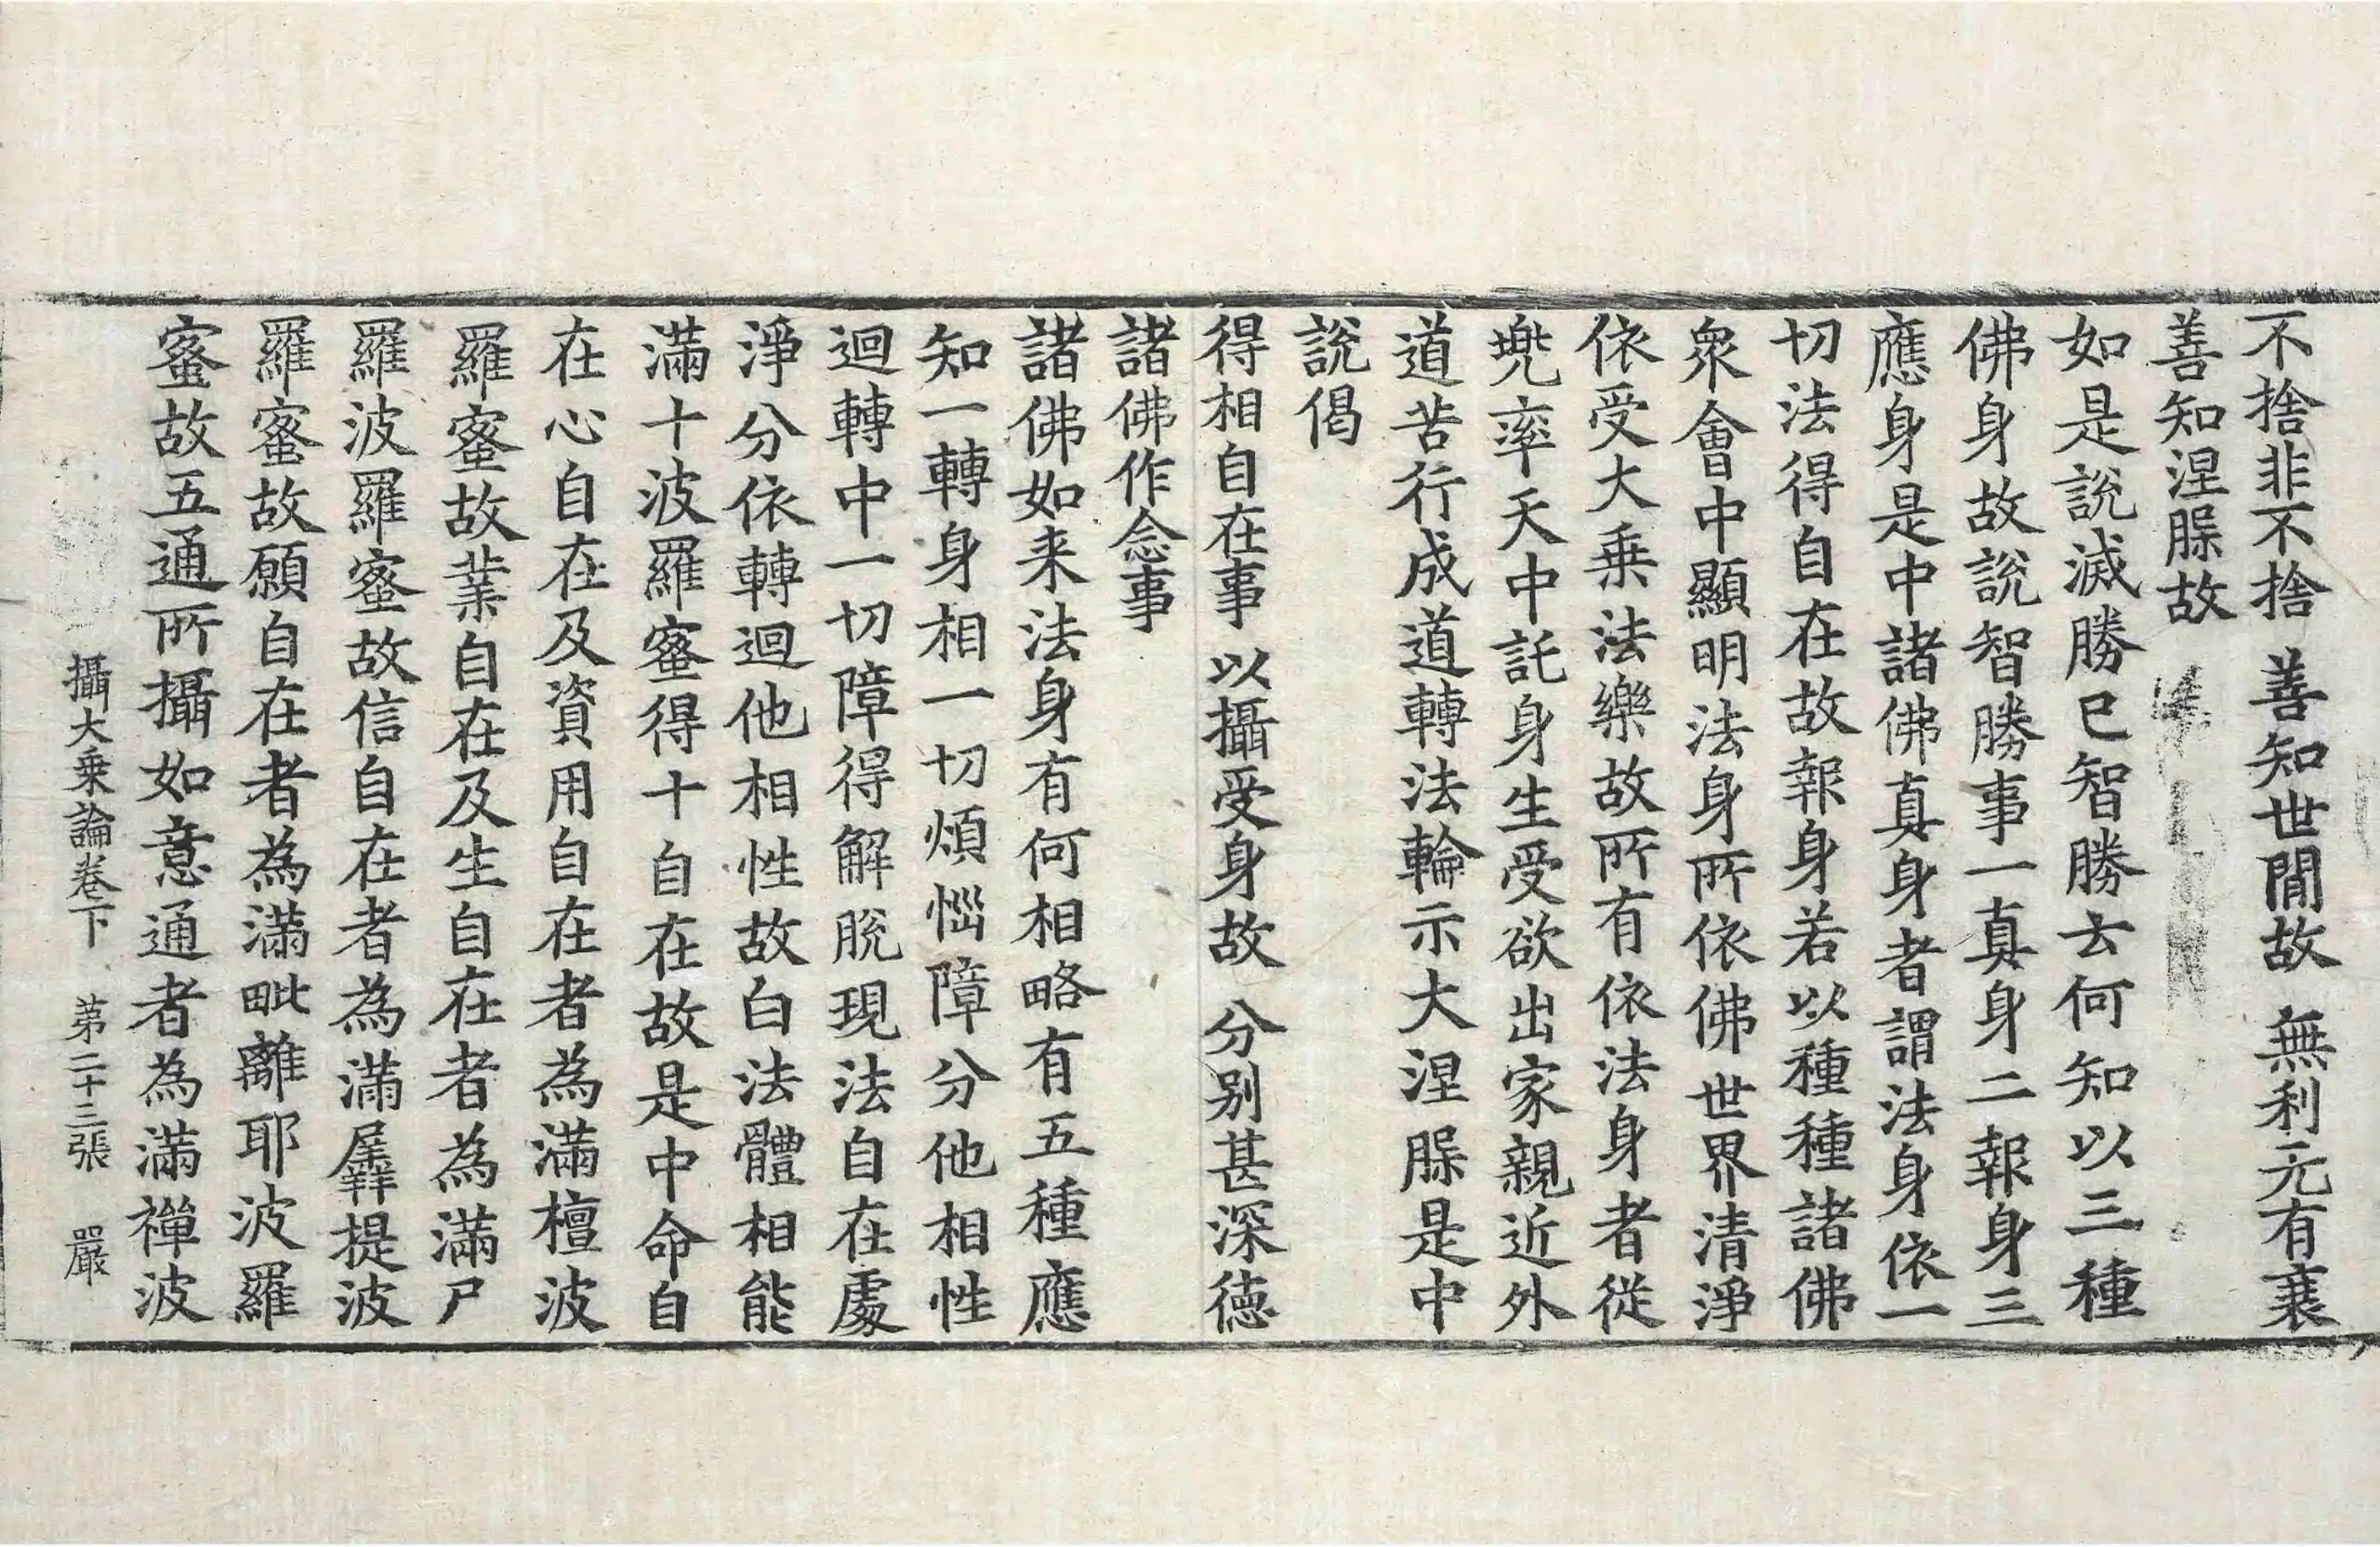 不捨非不捨　善知世間故　無利元有衰
善知涅脲故
如是說滅勝已智勝去何知以三種
佛身故說智勝事一真身二報身三
應身是中諸佛真身者謂法身依一
切法得自在故報身若以種種諸佛
衆會中顯明法身所依佛世界清淨
依受大乗法樂故所有依法身者從
兠率天中託身生受欲出家親近外
道苦行成道轉法輪示大涅脲是中
說偈
得相自在事　以攝受身故　分别甚深德
諸佛作念事
諸佛如来法身有何相略有五種應
知一轉身相一切煩惱障分他相性
迴轉中一切障得解脫現法自在處
淨分依轉迴他相性故白法體相能
滿十波羅蜜得十自在故是中命自
在心自在及資用自在者為滿檀波
羅蜜故業自在及生自在者為滿尸
羅波羅蜜故信自在者為滿羼提波
羅蜜故願自在者為滿毗離耶波羅
蜜故五通所攝如意通者為滿禅波
攝大乗論卷下　苐二十三張　嚴